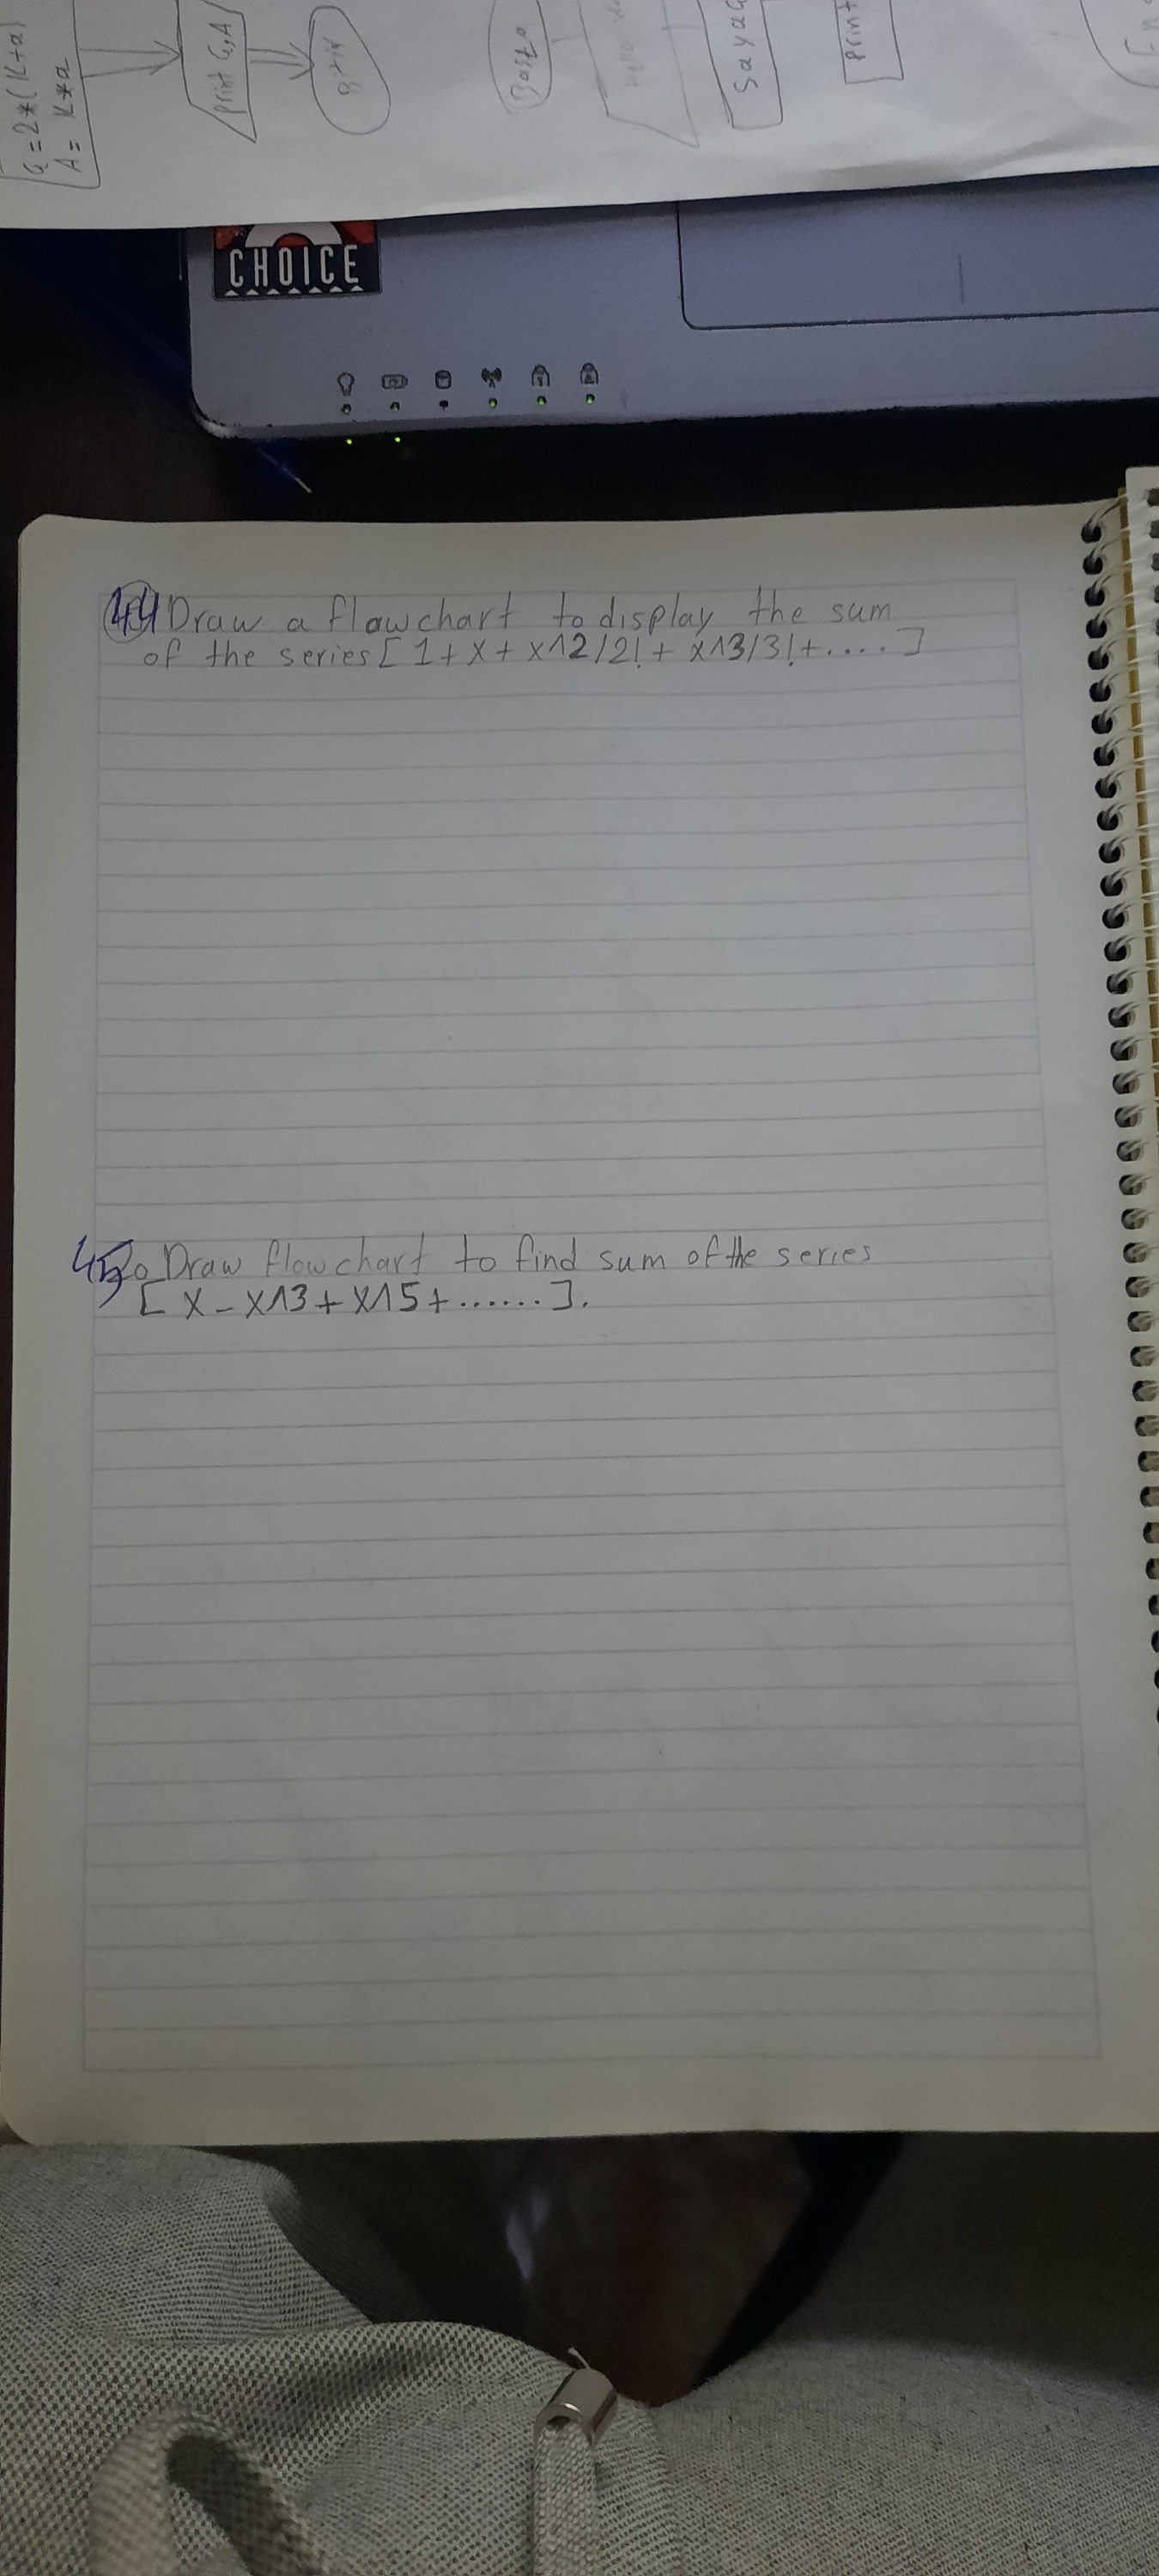 G=2*(K+a)
A= K*a
Print G,A
Bitir
Başla
Print
CHOICE
44 Draw a flowchart to display the sum
of the series [ 1 + x + x^2/2! + x^3/3! + .... ]
45. Draw flowchart to find sum of the series
[ x - x^3 + x^5 + ...... ].